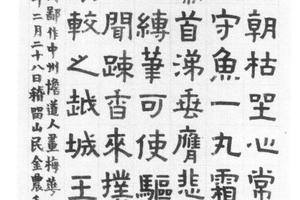 朝枯坐心常
守魚一丸霜
首涕垂膺悲
縛筆可使驅
聞踈香來撲
較之越城王
鄙作中州檐道人畫梅華
年二月二十八日稽留山民金農